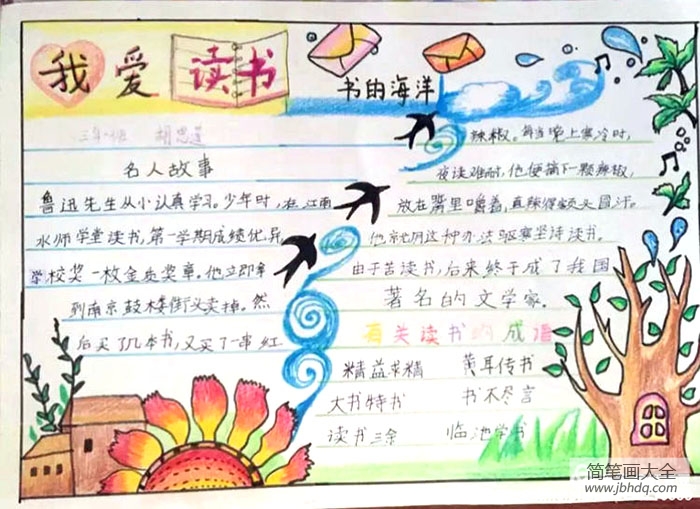 我爱读书
书的海洋
三年级 胡思莲
名人故事
鲁迅先生从小认真学习。少年时，在江南
水师学堂读书，第一学期成绩优异
学校奖一枚金质奖章。他立即拿
到南京鼓楼街头卖掉。然
后买了几本书，又买了一串红
辣椒。每当晚上寒冷时，
夜读难耐，他便摘下一颗辣椒，
放在嘴里嚼着，直辣得额头冒汗。
他就用这种办法驱寒坚持读书。
由于苦读书，后来终于成了我国
著名的文学家。
有关读书的成语
精益求精 黄耳传书
大书特书 书不尽言
读书三余 临池学书
简笔画大全
www.jbhdq.com